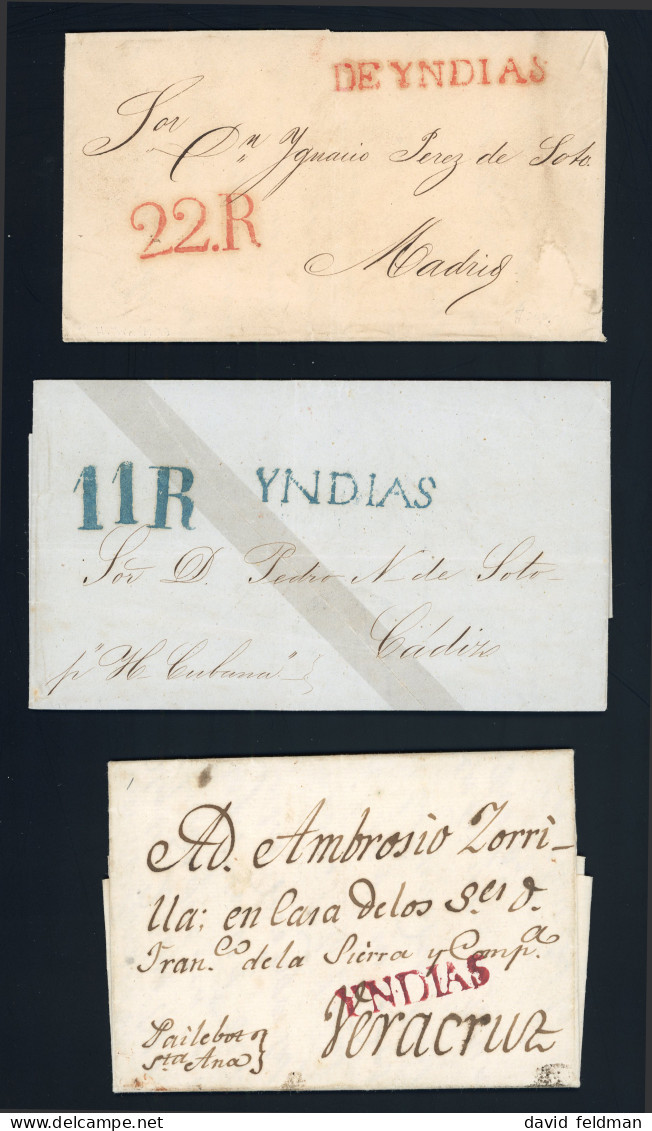 DE YNDIAS
Sor
Dn Ygnacio Perez de Soto
22.R
Madrid
11R YNDIAS
Sor D. Pedro N. de Soto
Cádiz
p "H. Cubana"
Ad. Ambrosio Zorri-
lla; en Casa de los Ses. d.
Fran.co de la Sierra y Comp.a
YNDIAS
Veracruz
Pailebot
Sta Ana
© DELCAMPE.NET
david feldman